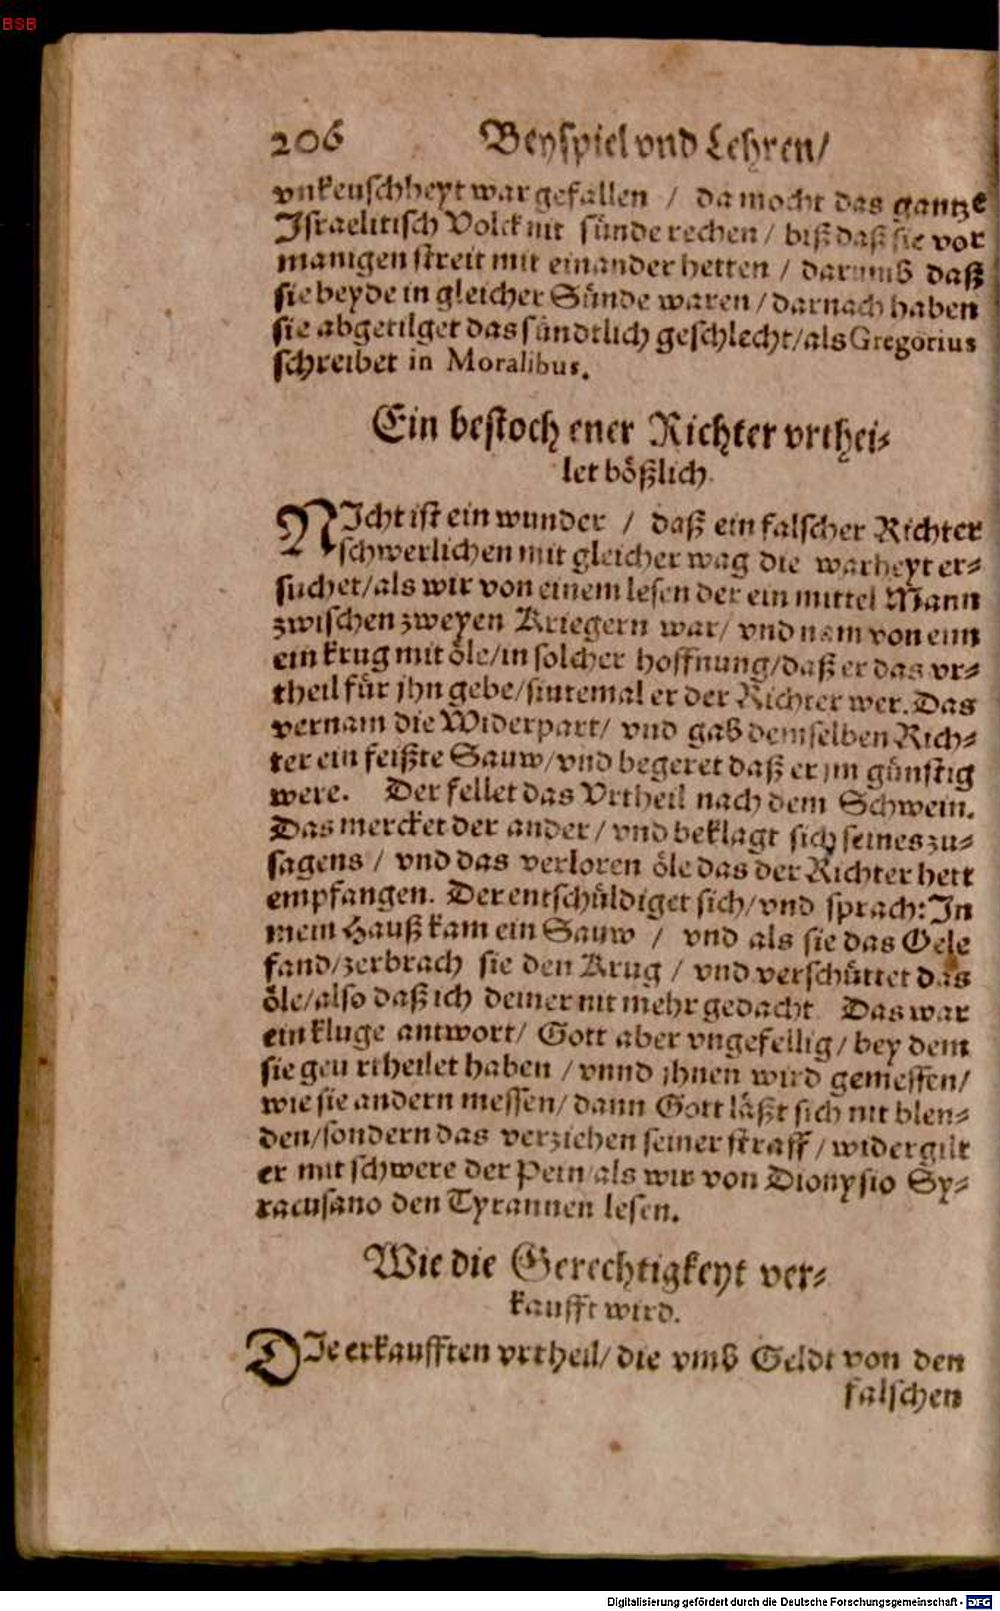 BSB
206 Beyspiel vnd Lehren/
vnkeuschheyt war gefallen / da mocht das gantze
Israelitisch Volck nit sünde rechen / biß daß sie vor
manigen streit mit einander hetten / darumb daß
sie beyde in gleicher Sünde waren / darnach haben
sie abgetilget das sündtlich geschlecht/als Gregorius
schreibet in Moralibus.
Ein bestochener Richter vrthei-
let bößlich.
NIcht ist ein wunder / daß ein falscher Richter
schwerlichen mit gleicher wag die warheyt er-
suchet/als wir von einem lesen der ein mittel Mann
zwischen zweyen Kriegern war/ vnd nam von eim
ein krug mit öle/in solcher hoffnung/daß er das vr-
theil für jhn gebe/sintemal er der Richter wer. Das
vernam die Widerpart/ vnd gab demselben Rich-
ter ein feißte Sauw/vnd begeret daß er jm günstig
were. Der fellet das Vrtheil nach dem Schwein.
Das mercket der ander/vnd beklagt sich seines zu-
sagens / vnd das verloren öle das der Richter hett
empfangen. Der entschüldiget sich/vnd sprach: In
mein Hauß kam ein Sauw / vnd als sie das Oele
fand/zerbrach sie den Krug / vnd verschüttet das
öle/also daß ich deiner nit mehr gedacht Das war
ein kluge antwort/ Gott aber vngefellig/ bey dem
sie geurtheilet haben / vnnd jhnen wird gemessen/
wie sie andern messen/ dann Gott läßt sich nit blen-
den/sondern das verziehen seiner straff / widergilt
er mit schwere der Pein/als wir von Dionysio Sy-
racusano den Tyrannen lesen.
Wie die Gerechtigkeyt ver-
kaufft wird.
DIe erkaufften vrtheil/ die vmb Geldt von den
falschen
Digitalisierung gefördert durch die Deutsche Forschungsgemeinschaft - DFG